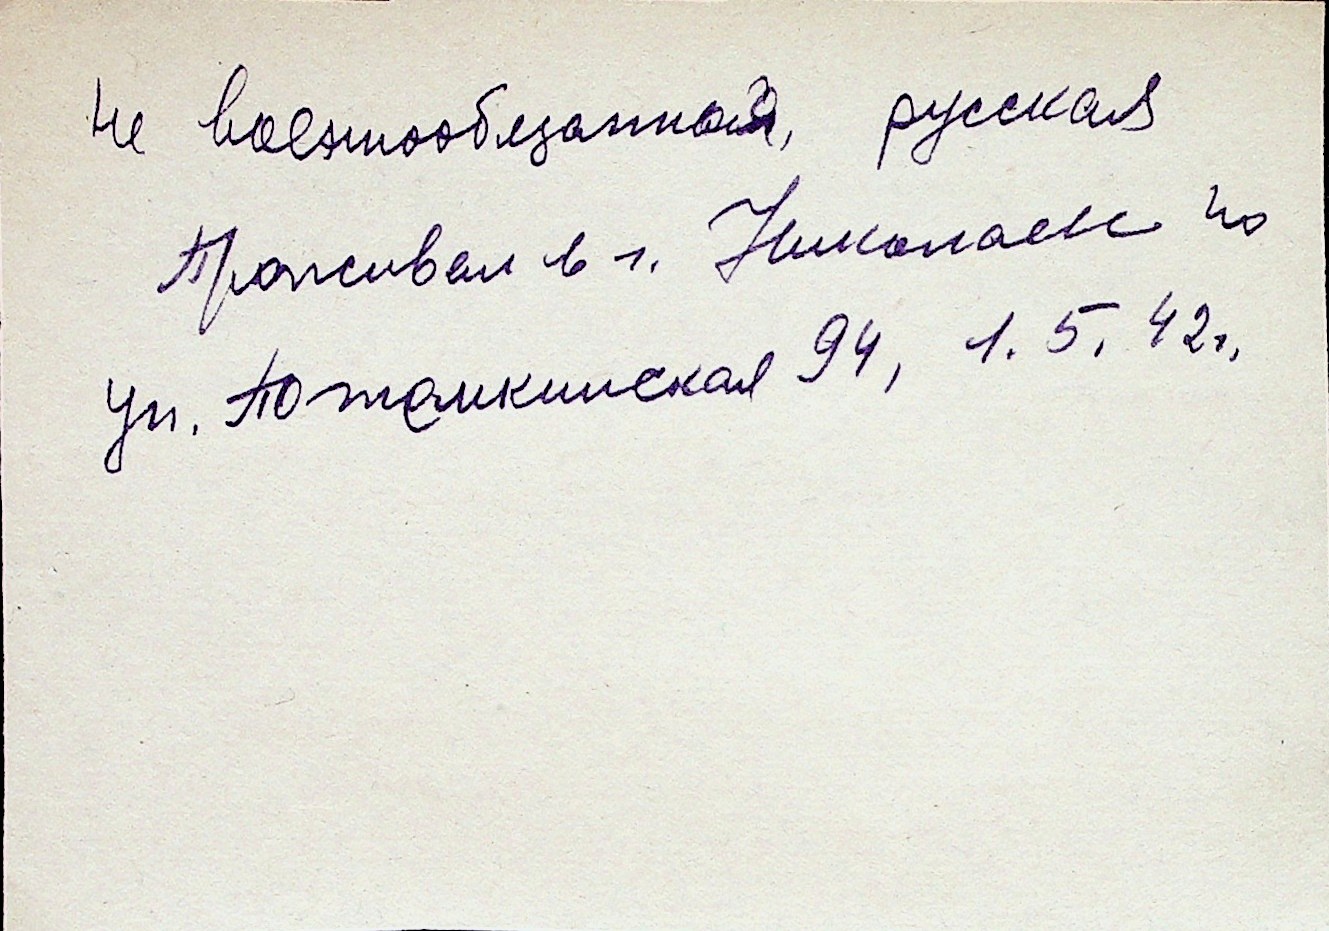 Не военнообязанная, русская
Проживал в г. Николаеве по
ул. Потемкинская 94, 1. 5. 42г.